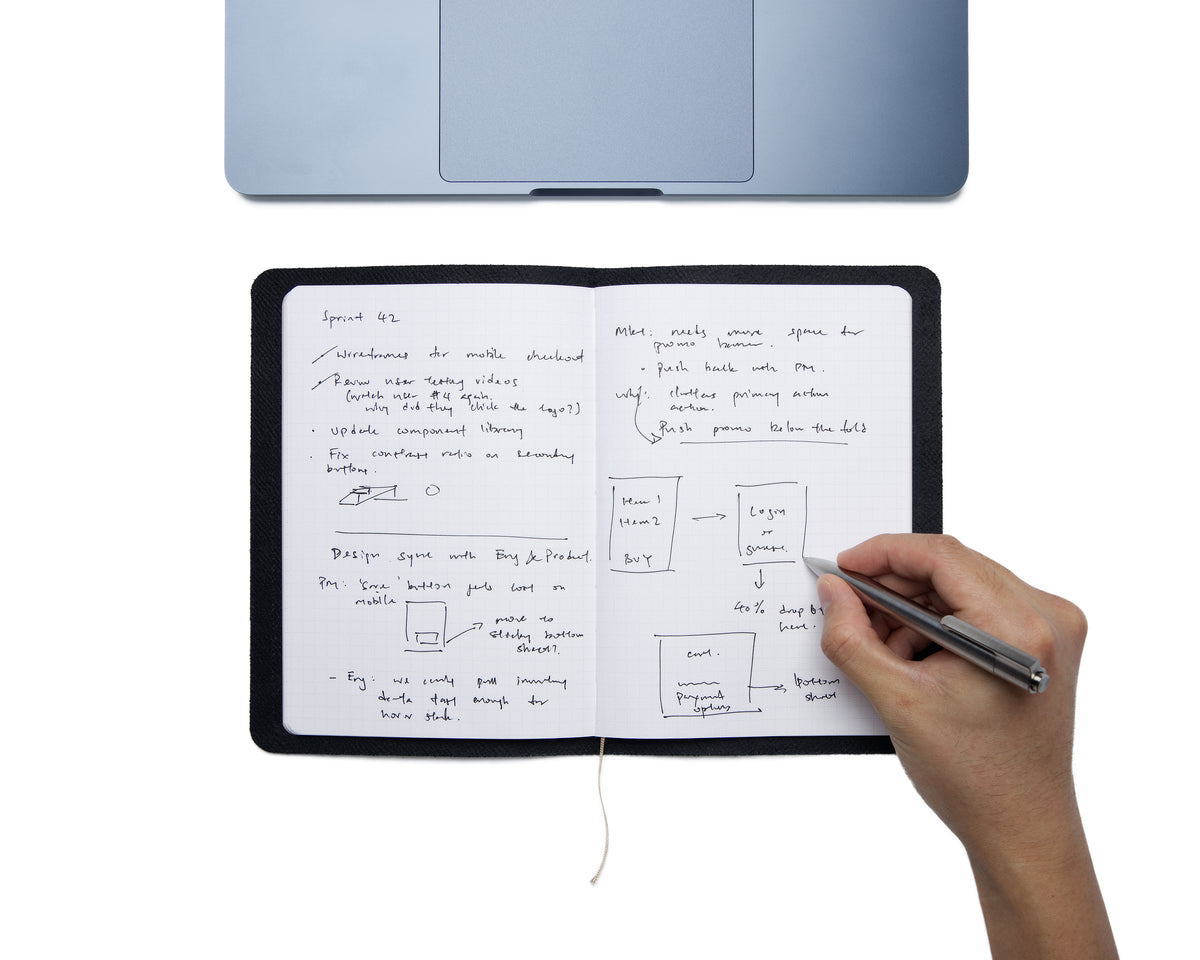 Sprint 42
Wireframes for mobile checkout
Review user testing videos
(watch user #4 again.
why did they click the logo?)
· Update component library
· Fix contrast ratio on secondary
buttons.
Design sync with Eng & Product.
PM: 'Save' button feels lost on
mobile
move to
sticky bottom
sheet?
- Eng: we can't pull inventory
data fast enough for
hover state.
Mkt: needs more space for
promo banner.
· Push back with PM.
why: clutters primary action
action.
Push promo below the fold
Item 1
Item 2
BUY
Login
or
40% drop
here.
payment
options
bottom
sheet